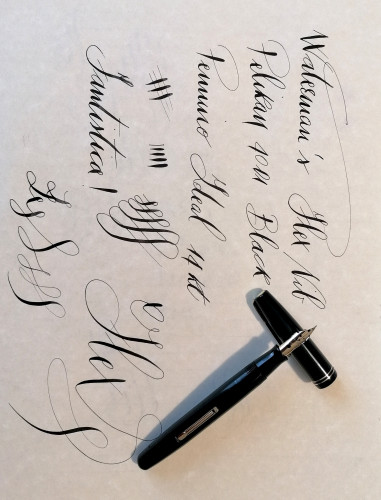 Waterman's Flex Nib
Pelikan 4001 Black
Pennino Ideal 14 kt
Fantistica!
Flex